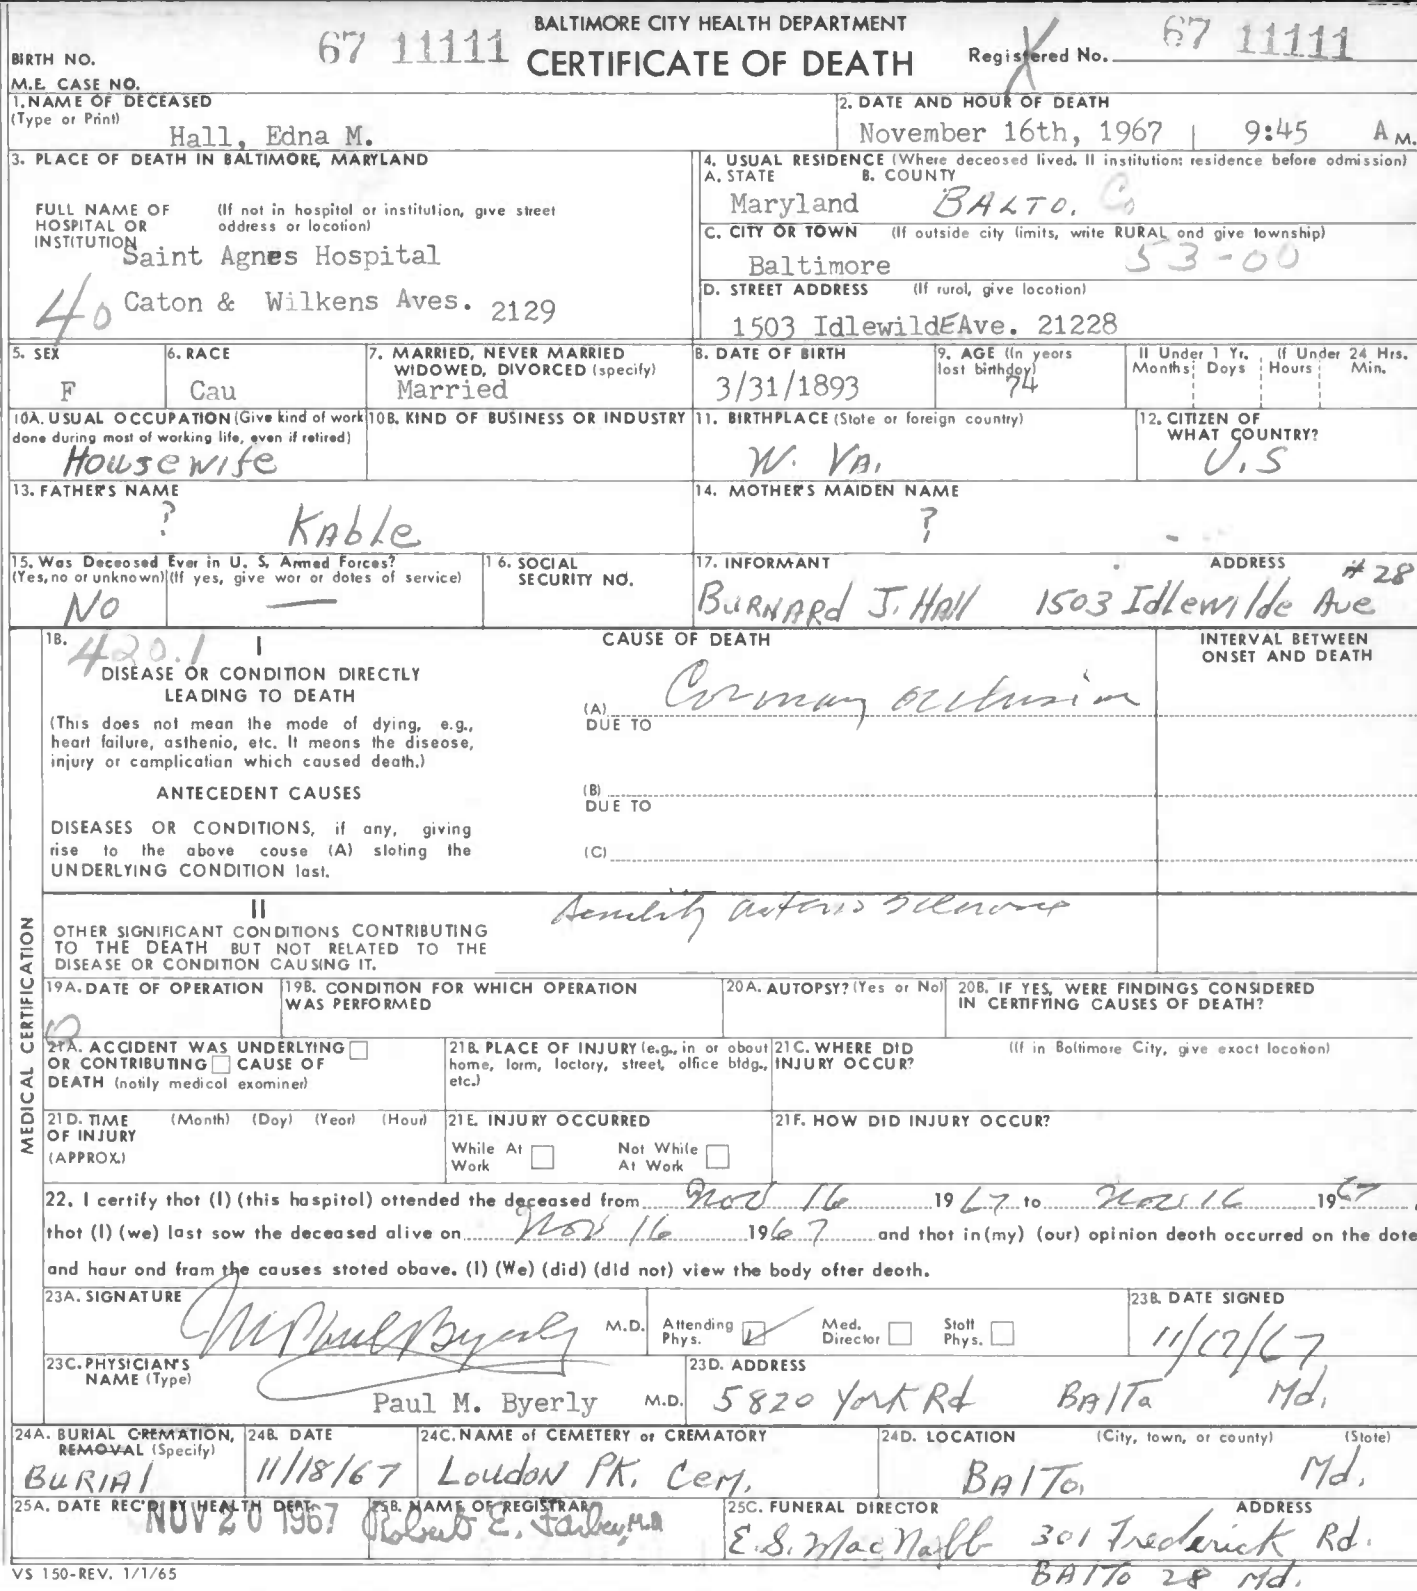 BALTIMORE CITY HEALTH DEPARTMENT
67 11111 CERTIFICATE OF DEATH Registered No. 67 11111
BIRTH NO.
M.E. CASE NO.
1. NAME OF DECEASED
(Type or Print)
Hall, Edna M.
2. DATE AND HOUR OF DEATH
November 16th, 1967 | 9:45 A M.
3. PLACE OF DEATH IN BALTIMORE, MARYLAND
FULL NAME OF HOSPITAL OR INSTITUTION
(If not in hospital or institution, give street address or location)
Saint Agnes Hospital
40 Caton & Wilkens Aves. 2129
4. USUAL RESIDENCE (Where deceased lived. If institution: residence before admission)
A. STATE B. COUNTY
Maryland BALTO. Co
C. CITY OR TOWN (If outside city limits, write RURAL and give township)
Baltimore 53-00
D. STREET ADDRESS (If rural, give location)
1503 IdlewildE Ave. 21228
5. SEX
F
6. RACE
Cau
7. MARRIED, NEVER MARRIED
WIDOWED, DIVORCED (specify)
Married
8. DATE OF BIRTH
3/31/1893
9. AGE (In years
last birthday)
74
If Under 1 Yr. If Under 24 Hrs.
Months Days Hours Min.
10A. USUAL OCCUPATION (Give kind of work
done during most of working life, even if retired)
Housewife
10B. KIND OF BUSINESS OR INDUSTRY
11. BIRTHPLACE (State or foreign country)
W. VA.
12. CITIZEN OF
WHAT COUNTRY?
U.S
13. FATHER'S NAME
? Kable
14. MOTHER'S MAIDEN NAME
?
15. Was Deceased Ever in U. S. Armed Forces?
(Yes, no or unknown) (If yes, give war or dates of service)
No —
16. SOCIAL
SECURITY NO.
17. INFORMANT ADDRESS
BURNARd J. HAll 1503 Idlewilde Ave #28
MEDICAL CERTIFICATION
18. 420.1 I
DISEASE OR CONDITION DIRECTLY
LEADING TO DEATH
(This does not mean the mode of dying, e.g.,
heart failure, asthenia, etc. It means the disease,
injury or complication which caused death.)
ANTECEDENT CAUSES
DISEASES OR CONDITIONS, if any, giving
rise to the above cause (A) stating the
UNDERLYING CONDITION last.
CAUSE OF DEATH
(A) Coronary occlusion
DUE TO
(B)
DUE TO
(C)
INTERVAL BETWEEN
ONSET AND DEATH
II
OTHER SIGNIFICANT CONDITIONS CONTRIBUTING
TO THE DEATH BUT NOT RELATED TO THE
DISEASE OR CONDITION CAUSING IT.
Senility
19A. DATE OF OPERATION
19B. CONDITION FOR WHICH OPERATION
WAS PERFORMED
20A. AUTOPSY? (Yes or No)
20B. IF YES, WERE FINDINGS CONSIDERED
IN CERTIFYING CAUSES OF DEATH?
21A. ACCIDENT WAS UNDERLYING
OR CONTRIBUTING CAUSE OF
DEATH (notify medical examiner)
21B. PLACE OF INJURY (e.g., in or about
home, farm, factory, street, office bldg.,
etc.)
21C. WHERE DID (If in Baltimore City, give exact location)
INJURY OCCUR?
21D. TIME (Month) (Day) (Year) (Hour)
OF INJURY
(APPROX.)
21E. INJURY OCCURRED
While At Work Not While At Work
21F. HOW DID INJURY OCCUR?
22. I certify that (I) (this hospital) attended the deceased from Nov 16 1967 to Nov 16 1967
that (I) (we) last saw the deceased alive on Nov 16 1967 and that in (my) (our) opinion death occurred on the date
and hour and from the causes stated above. (I) (We) (did) (did not) view the body after death.
23A. SIGNATURE
M Paul Byerly M.D.
Attending Phys. Med. Director Staff Phys.
23B. DATE SIGNED
11/17/67
23C. PHYSICIAN'S
NAME (Type)
Paul M. Byerly M.D.
23D. ADDRESS
5820 York Rd BAlTo Md.
24A. BURIAL CREMATION,
REMOVAL (Specify)
BURIAl
24B. DATE
11/18/67
24C. NAME of CEMETERY or CREMATORY
LOUDON PK. Cem.
24D. LOCATION (City, town, or county) (State)
BAlTo. Md.
25A. DATE REC'D BY HEALTH DEPT.
NOV 20 1967
25B. NAME OF REGISTRAR
Robert E. Farber, M.D.
25C. FUNERAL DIRECTOR ADDRESS
E.S. MacNabb 301 Frederick Rd.
BAlTo 28 Md.
VS 150-REV. 1/1/65